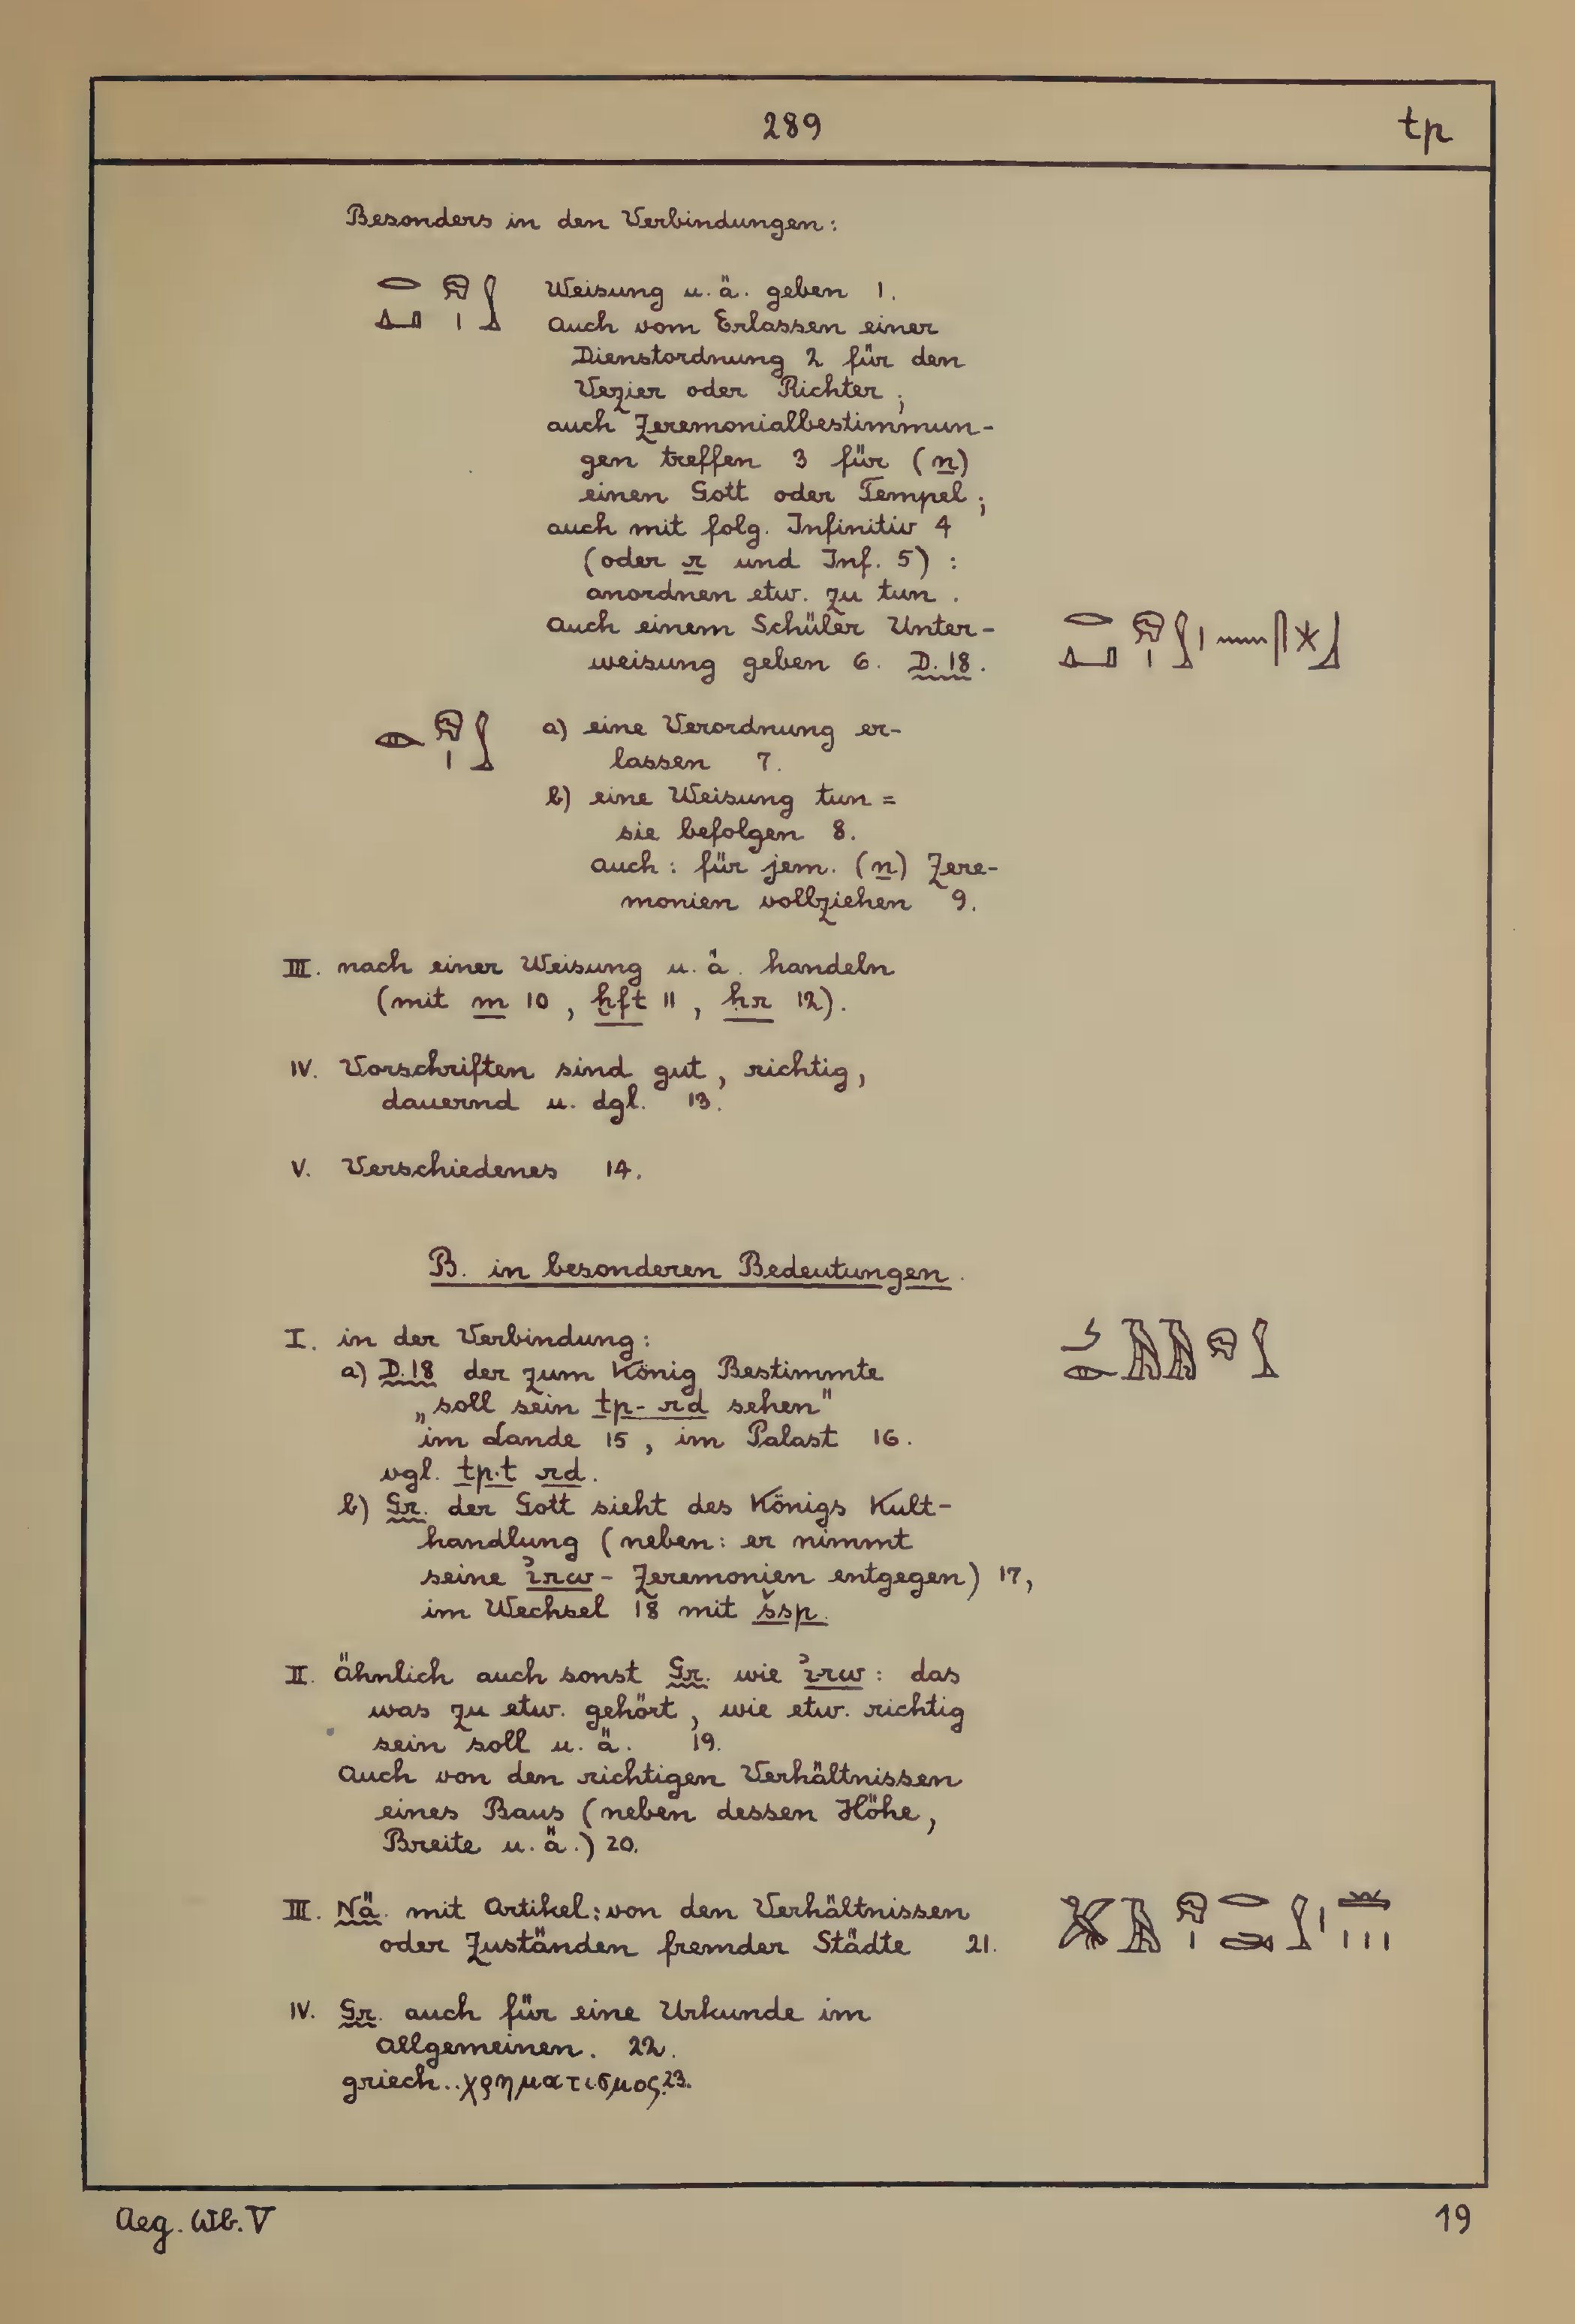 289
tp
Besonders in den Verbindungen:
Weisung u. ä. geben 1.
auch vom Erlassen einer
Dienstordnung 2 für den
Vezier oder Richter;
auch Zeremonialbestimmun-
gen treffen 3 für (n)
einen Gott oder Tempel;
auch mit folg. Infinitiv 4
(oder r und Inf. 5) :
anordnen etw. zu tun.
auch einem Schüler Unter-
weisung geben 6. D.18.
a) eine Verordnung er-
lassen 7.
b) eine Weisung tun =
sie befolgen 8.
auch: für jem. (n) Zere-
monien vollziehen 9.
III. nach einer Weisung u. ä. handeln
(mit m 10, ḫft 11, ḥr 12).
IV. Vorschriften sind gut, richtig,
dauernd u. dgl. 13.
V. Verschiedenes 14.
B. in besonderen Bedeutungen.
I. in der Verbindung:
a) D.18 der zum König Bestimmte
„soll sein tp-rd sehen"
im Lande 15, im Palast 16.
vgl. tp.t rd.
b) Gr. der Gott sieht des Königs Kult-
handlung (neben: er nimmt
seine ꞽrw- Zeremonien entgegen) 17,
im Wechsel 18 mit šsp.
II. Ähnlich auch sonst Gr. wie ꞽrw: das
was zu etw. gehört, wie etw. richtig
sein soll u. ä. 19.
Auch von den richtigen Verhältnissen
eines Baus (neben dessen Höhe,
Breite u. ä.) 20.
III. Nä. mit Artikel: von den Verhältnissen
oder Zuständen fremder Städte 21.
IV. Gr. auch für eine Urkunde im
allgemeinen. 22.
griech..χρηματισμος.23.
Aeg. Wb. V
19